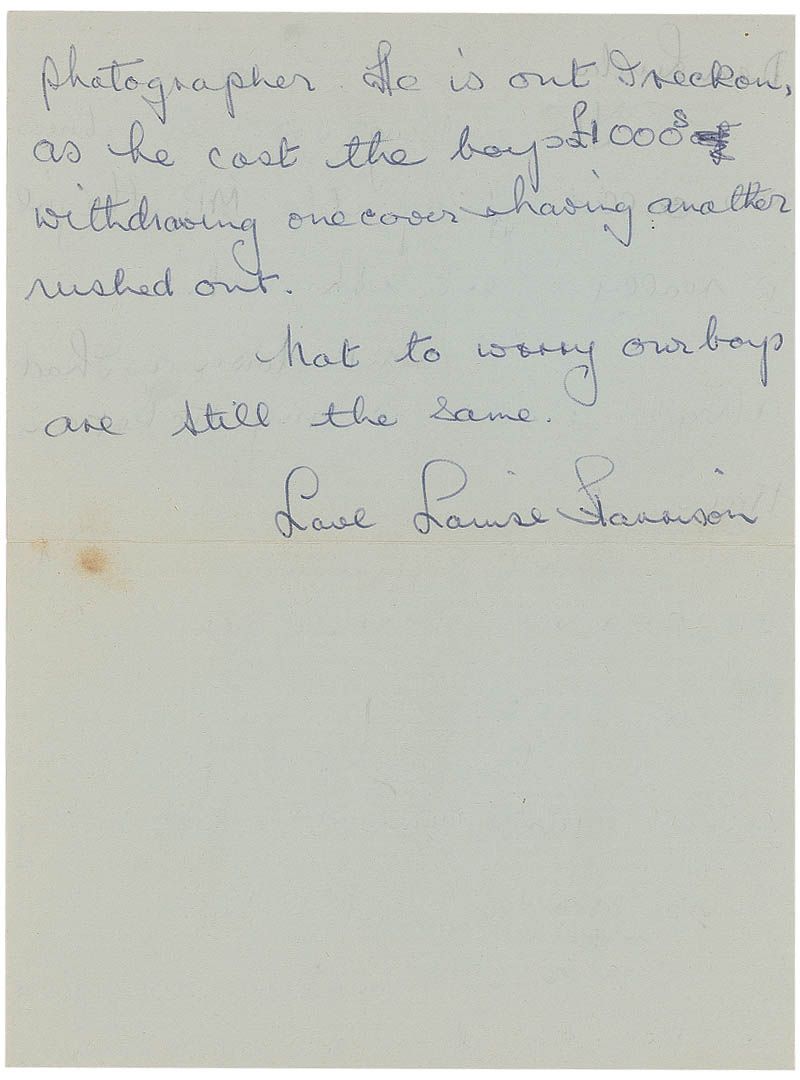 photographer. He is out I reckon,
as he cost the boys £1000s
withdrawing one cover & having another
rushed out.
Not to worry our boys
are still the same.
Love Louise Harrison